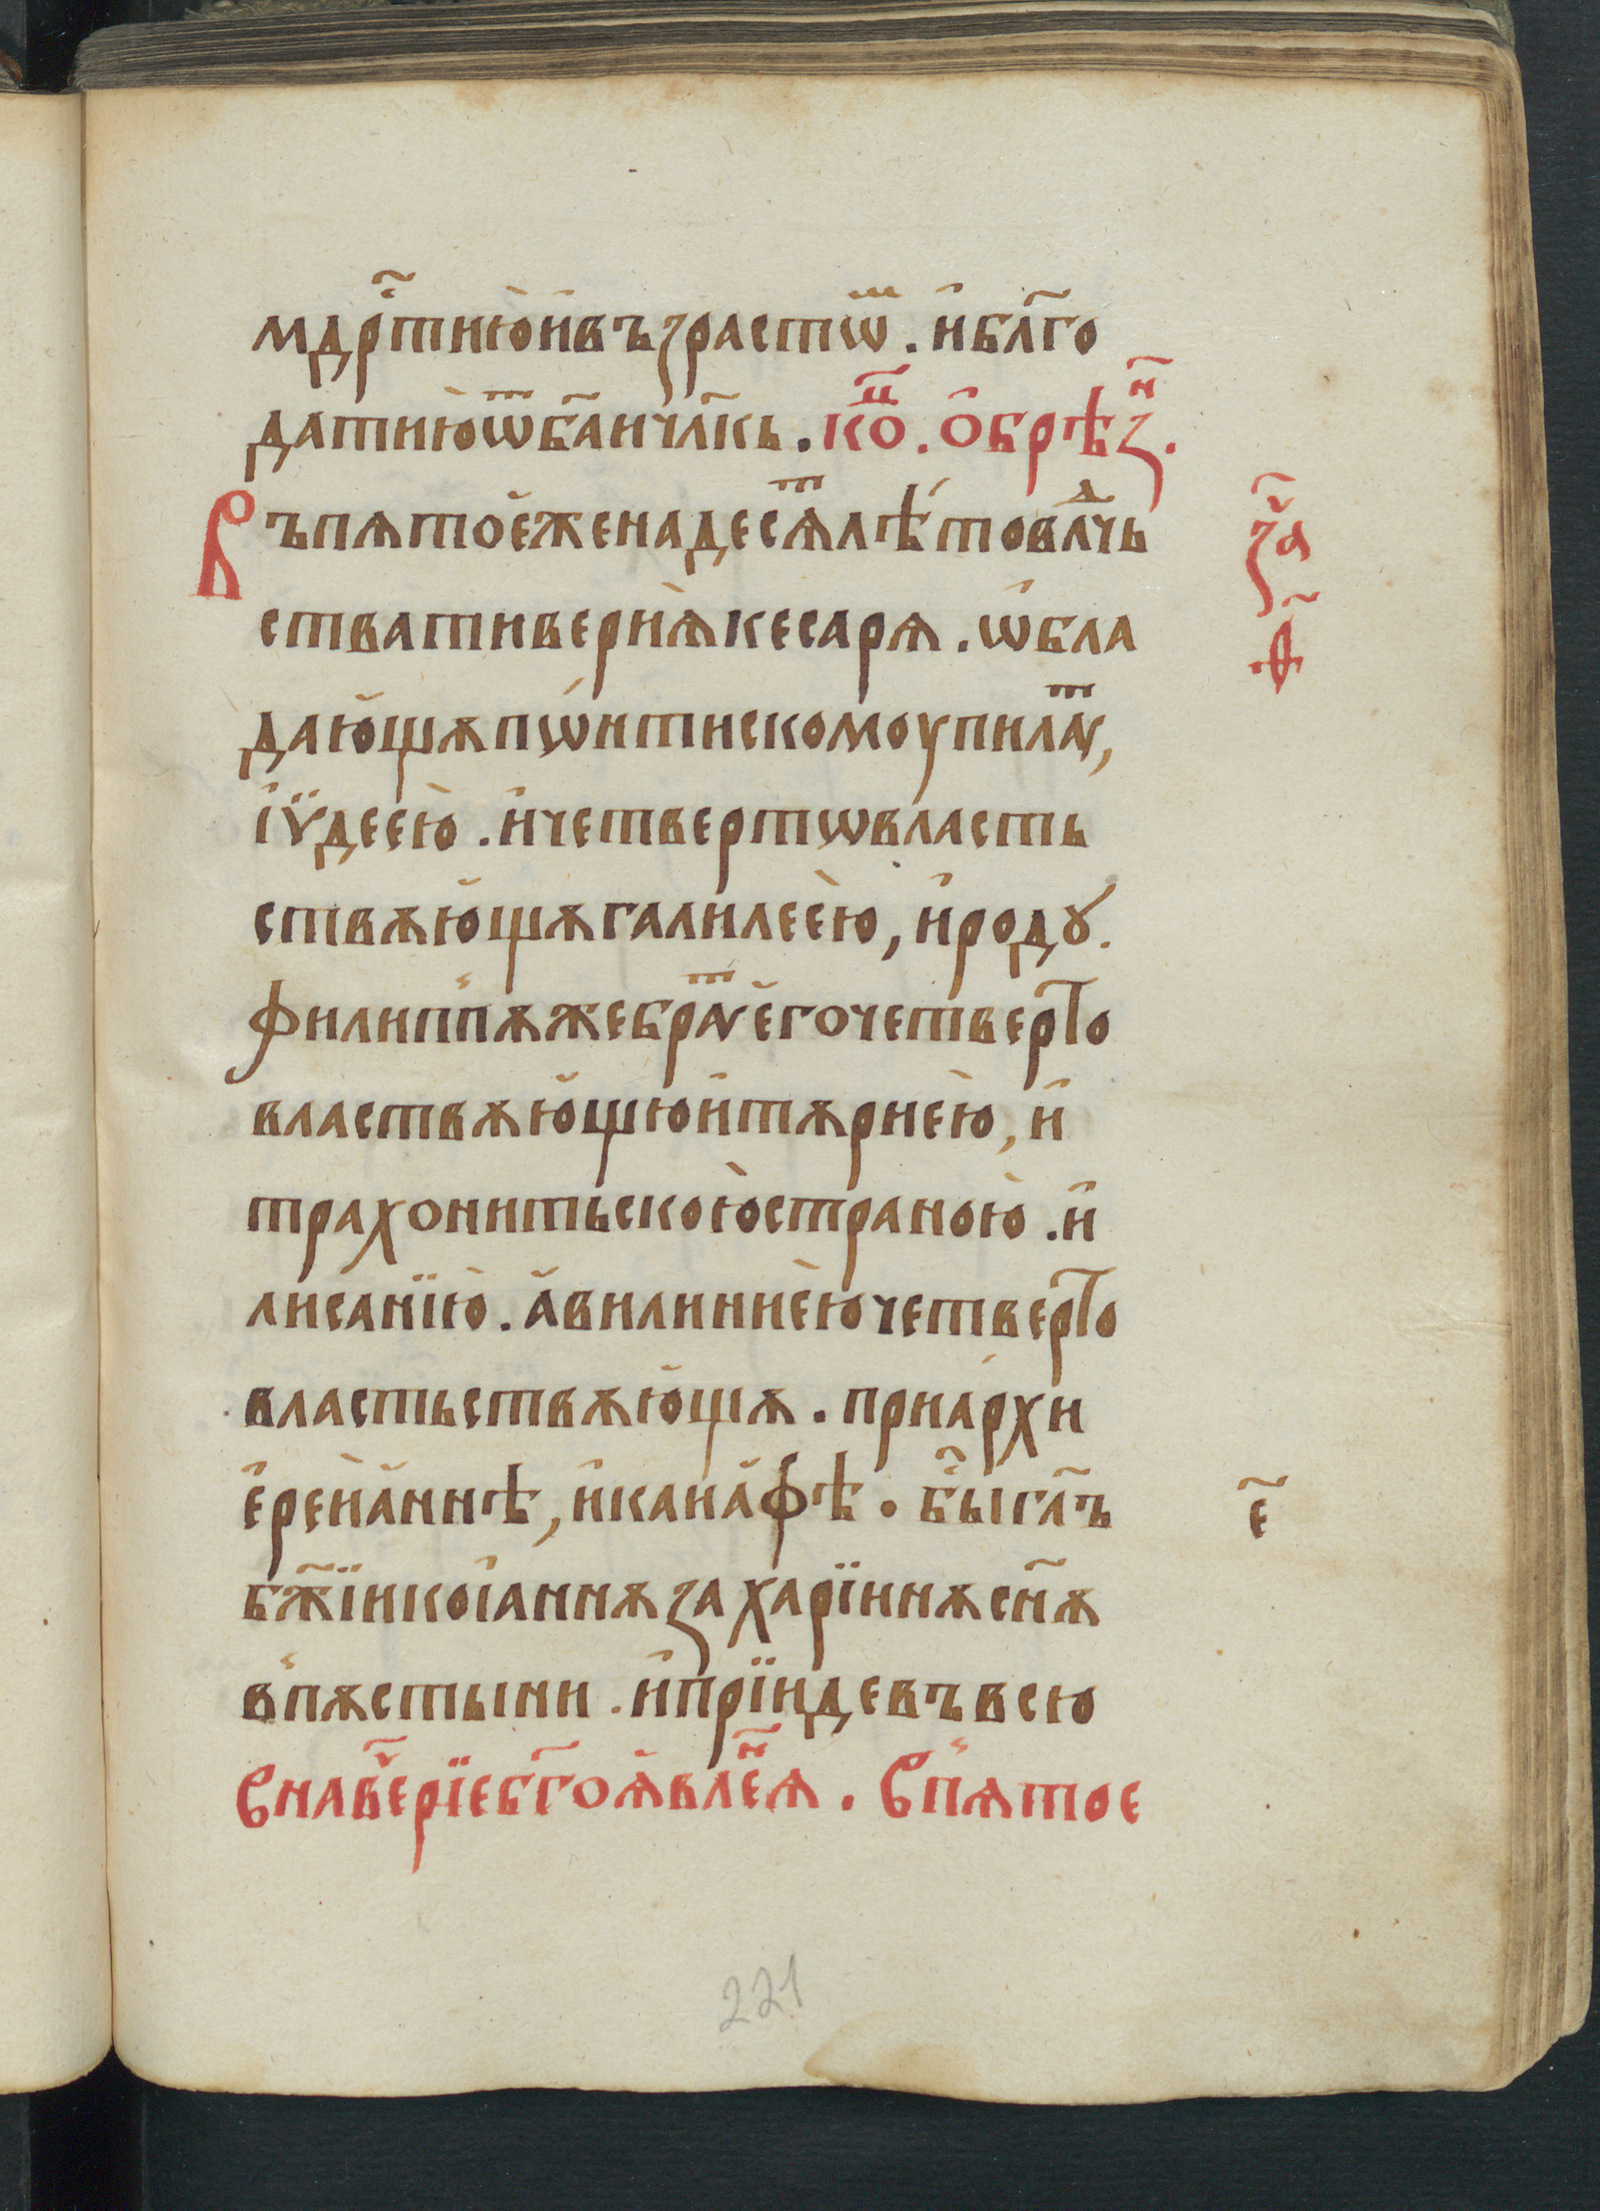 мдрⷭ҇тиѥ́ю и҆въꙁрастѿ . и҆бл҃го
датиѥ́ю ѿб҃а ичл҃кь . коⷰ҇ . ѻ҆брѣꙁⷩ҇ .
Въпѧтоеженадесѧⷮлѣ́товлⷣчь
ствативериѧ̀кесарѧ . ѡ҆бла
даю҆щѫпѡ́нтискомоупилаⷮѵ,
і҆ѵ̈деею̀ . и҆четвертовласть
ствѫю҆щѫгалилеею, и҆родꙋ .
филиппѫжебраⷮѵе҆гочетверто
властвѫю҆щюи҆тѫриею̀, и҆
трахонитьскою̀страною̀ . и҆
лиса́нїю̀ . а҆вилиниею̀четверто
властьствѫю҆щѫ . приа҆рхи
е҆реи҆а҆ннѣ, и҆каиа҆фѣ . бы́гл҃ъ
бж҃їикоі҆аннѫꙁахарїинѫсн҃ѫ
впѫстыни . и҆прїидевъвсю
Внавⷱ҇ерїебг҃оꙗ҆влеⷩ҇ꙗ . Впѧтое
ꙁаⷱ҇
.ѳ҃.
є҃
221